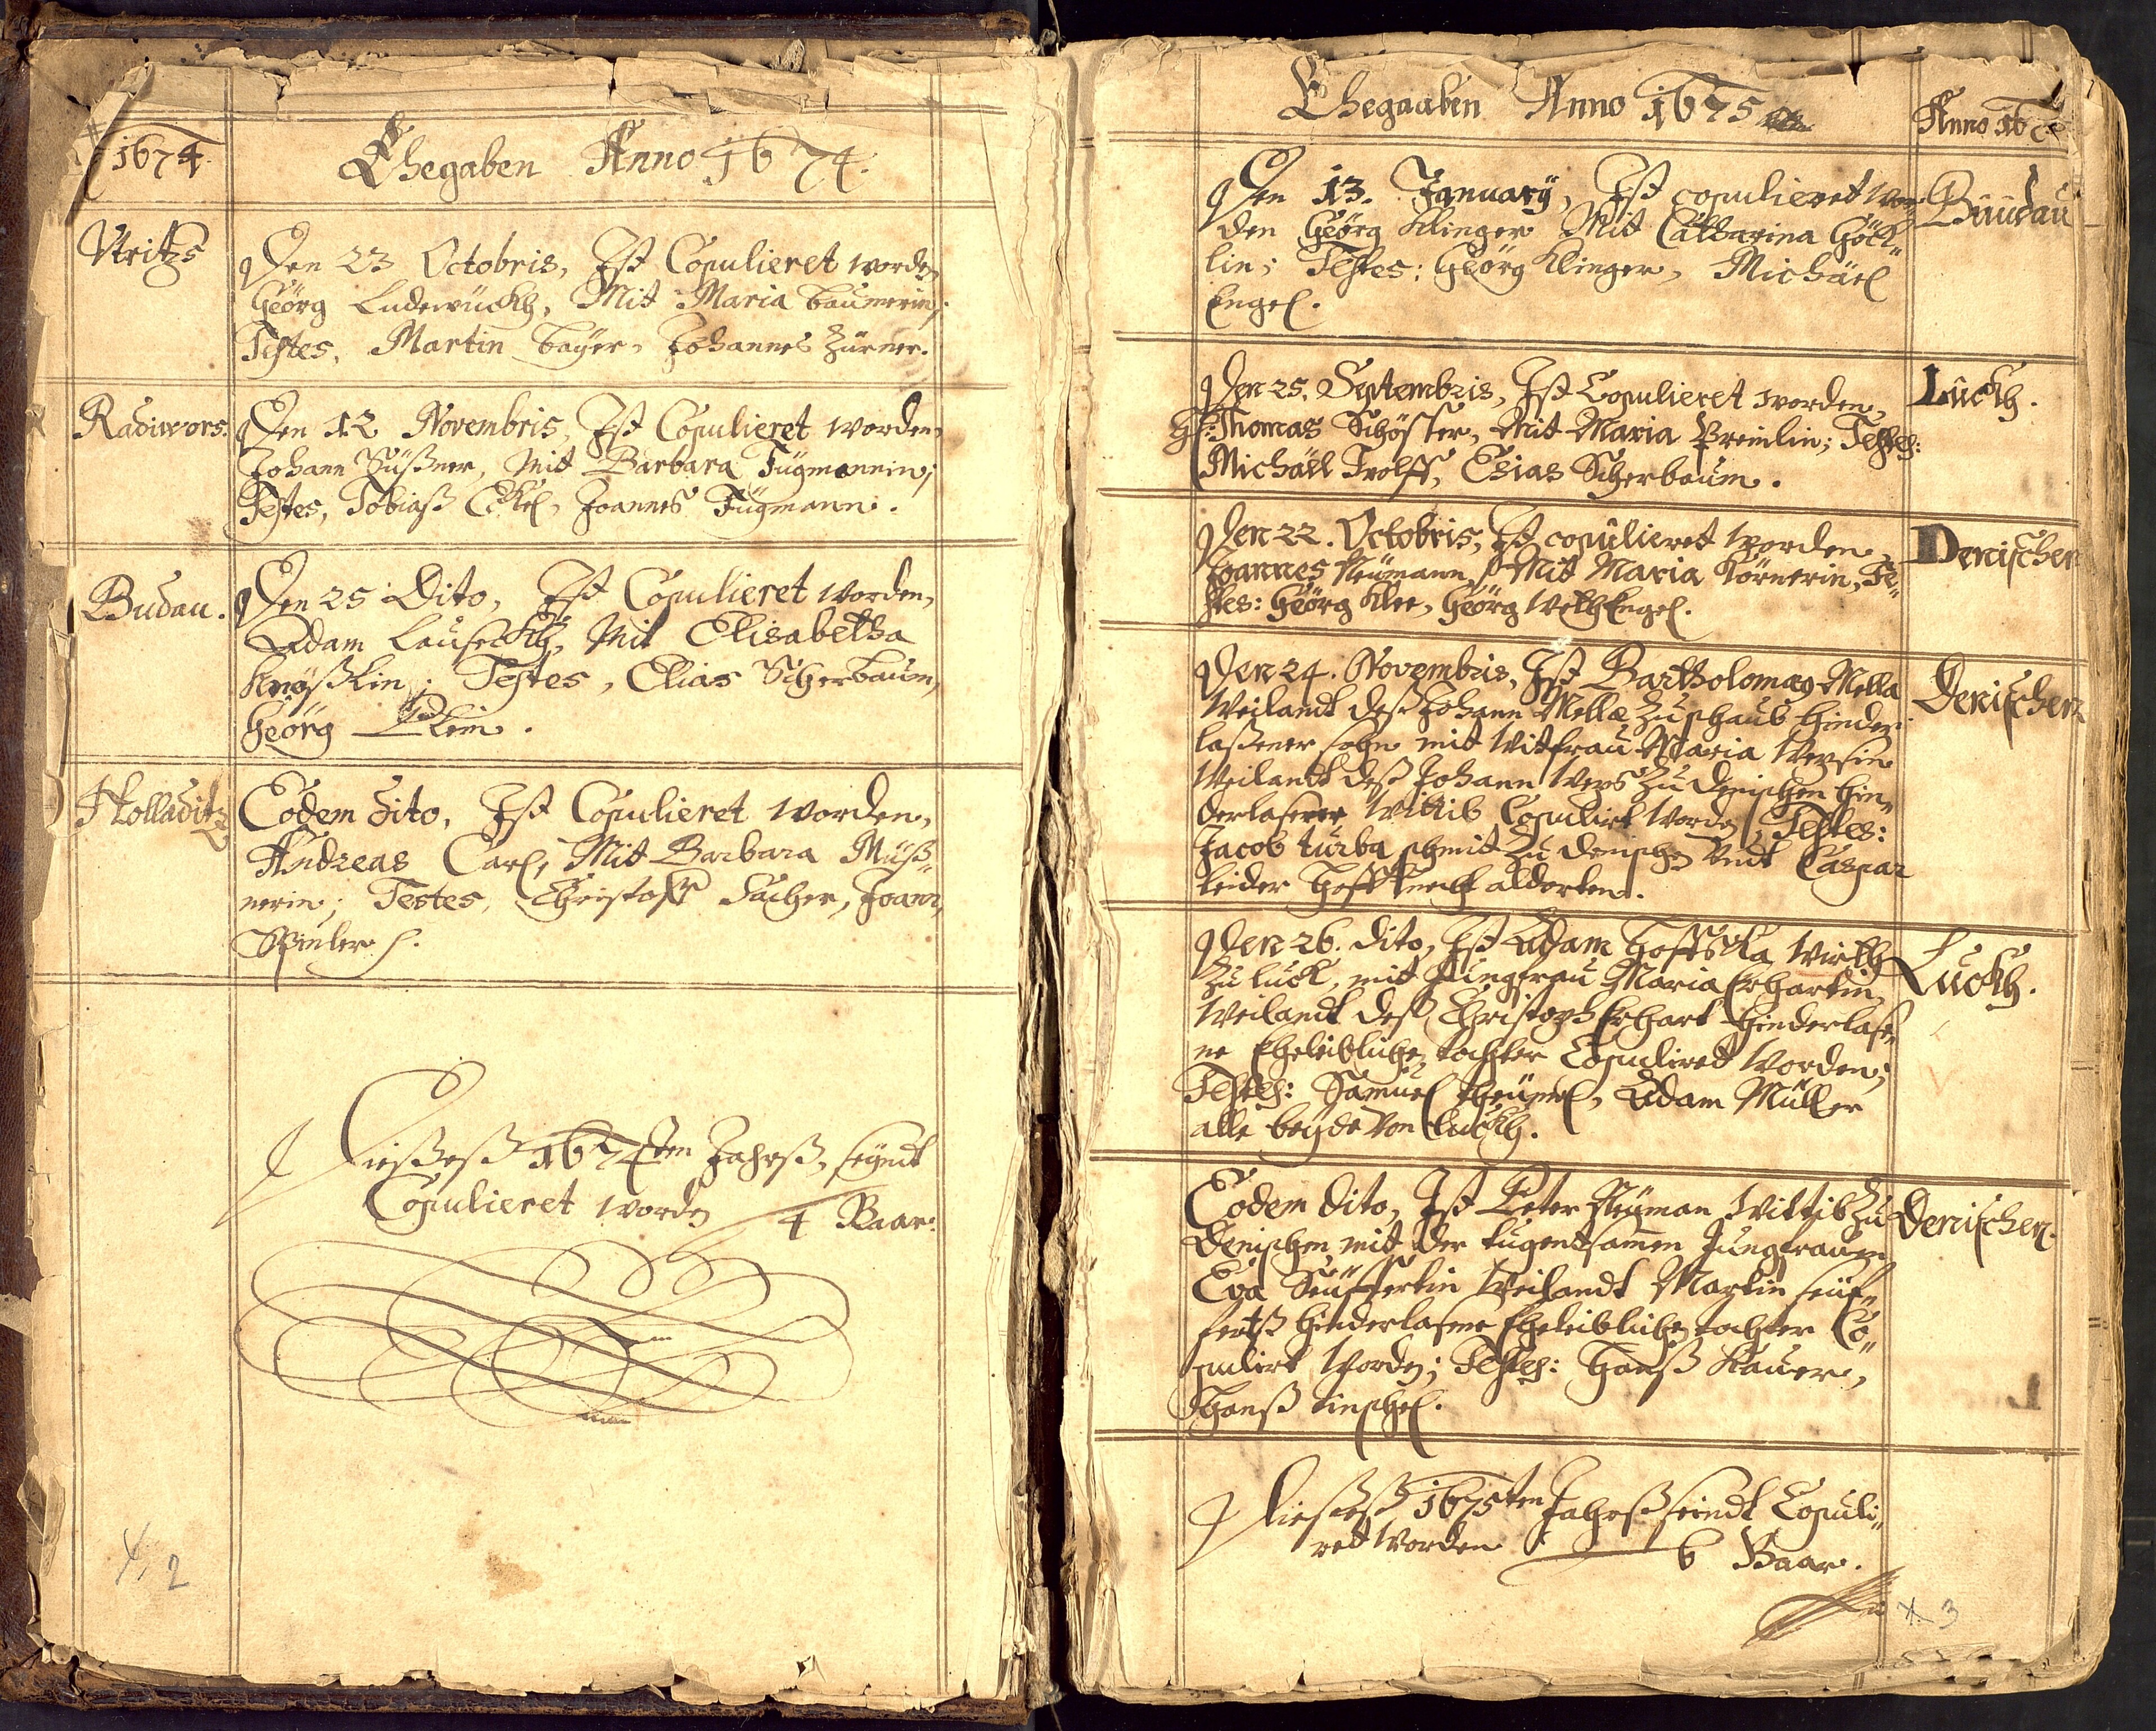 1674
Ehegaben Anno 1674.
Vtritzs
Den 23 Octobris, Ist Copulieret worden
Geörg Ludewückh, Mit Maria baumerin;
Testes, Martin bayer, Johannes Zürner.
Radiwors.
Den 12 Novembris, Ist Copulieret worden,
Johann Süßner, Mit Barbara Fügmannin;
Testes, Tobiaß Eckel, Joannes Fügmann.
Budau.
Den 25 Dito, Ist Copulieret worden,
Adam Lauseckh, Mit Elisabetha
Testes, Elias Scherbaum,
Geörg Klein.
Kolladitz
Eodem dito, Ist Copulieret worden,
Andreas Carl, Mit Barbara Müß„
nerin; Testes, Christoff Sacher, Joann,
Dießeß 1674ten Jahrß, seyndt
Copulieret worden 4 Paar.
2
Ehegaaben Anno 1675
Anno 167
Den 13. January, Ist copulieret wor„
Buudau
den Geörg Klinger Mit Catharina Göck„
lin; Testes: Geörg Klinger, Michäel
Engel.
Den 25. Septembris, Ist Copulieret worden,
Luckh.
Thomas Schösser, Mit Maria Breinlin; Testes:
Michäel Trolff, Elias Scherbaum.
Den 22. Octobris, Ist copulieret worden,
Denischen
Joannes Neümann, Mit Maria Körnerin, Te„
stes: Geörg Klee, Geörg Veith Engel.
Den 24. Novembris, Ist Bartholomaeg Mella
Denischen
Weilandt deß Johann Mellae Zu hauß hinder„
laßener sohn mit Witfrau Maria
Weilandt deß Johann Zu Denischen hin„
derlasener Wittib Copulirt worden, Testes:
Jacob turba schmit Zu denischen Vndt Caspar
leider Hoffknecht aldorten.
Den 26. dito, Ist Adam Hoffska Wirth
Luckh.
Zu luck, mit Jungfrau Maria Erhartin,
Weilandt deß Christoph Erhart hinderlaße„
ne Eheleibliche tochter Copuliret worden;
Testes: Samuel theümel, Adam Müller
alle beyde Von luckh.
Eodem dito, Ist Peter Neyman Wittib Zu
Denischen.
Denischen, mit der tugentsamen Jungfrauen
Eva Seüffertin Weilandt Martin seüf„
fertß hinderlasene Eheleibliche tochter Co„
pulirt worden; Testes: Hanß Bauer,
Hanß tinschel.
Dießeß 1675ten Jahrß seindt Copuli„
ret worden 6 Paar.
3